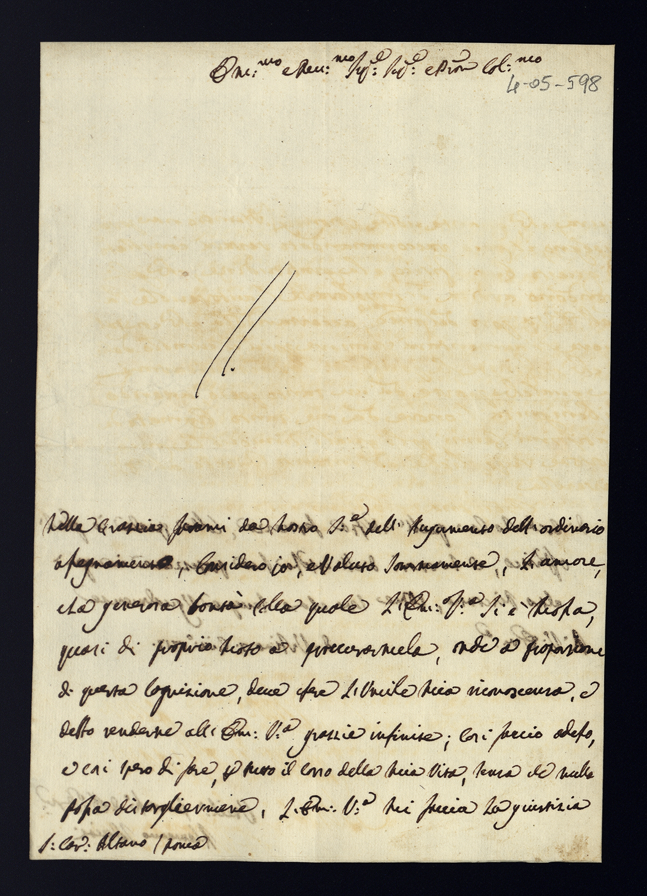 Em:mo e Reu:mo Sig:e Sig:e e Pron Col:mo
4-05-598
Nella Grazia fattami da Nostro S.e dell'Augumento dell'ordinario
assegnamento, Considero io, e Valuto Sommamente, L'amore,
e la generosa bontà colla quale L'Em: V:a Si è mossa,
quasi di proprio moto a procurarmela, onde a proporzione
di questa Cognizione, deve essere L'Umile mia riconoscenza, e
debbo renderne all'Em: V:a grazie infinite; Cosi faccio adesso,
e cosi spero di fare, p tutto il Corso della mia Vita, senza che nulla
possa distogliermene, L'Em: V:a mi faccia La giustizia
S: Car: Albano / Roma